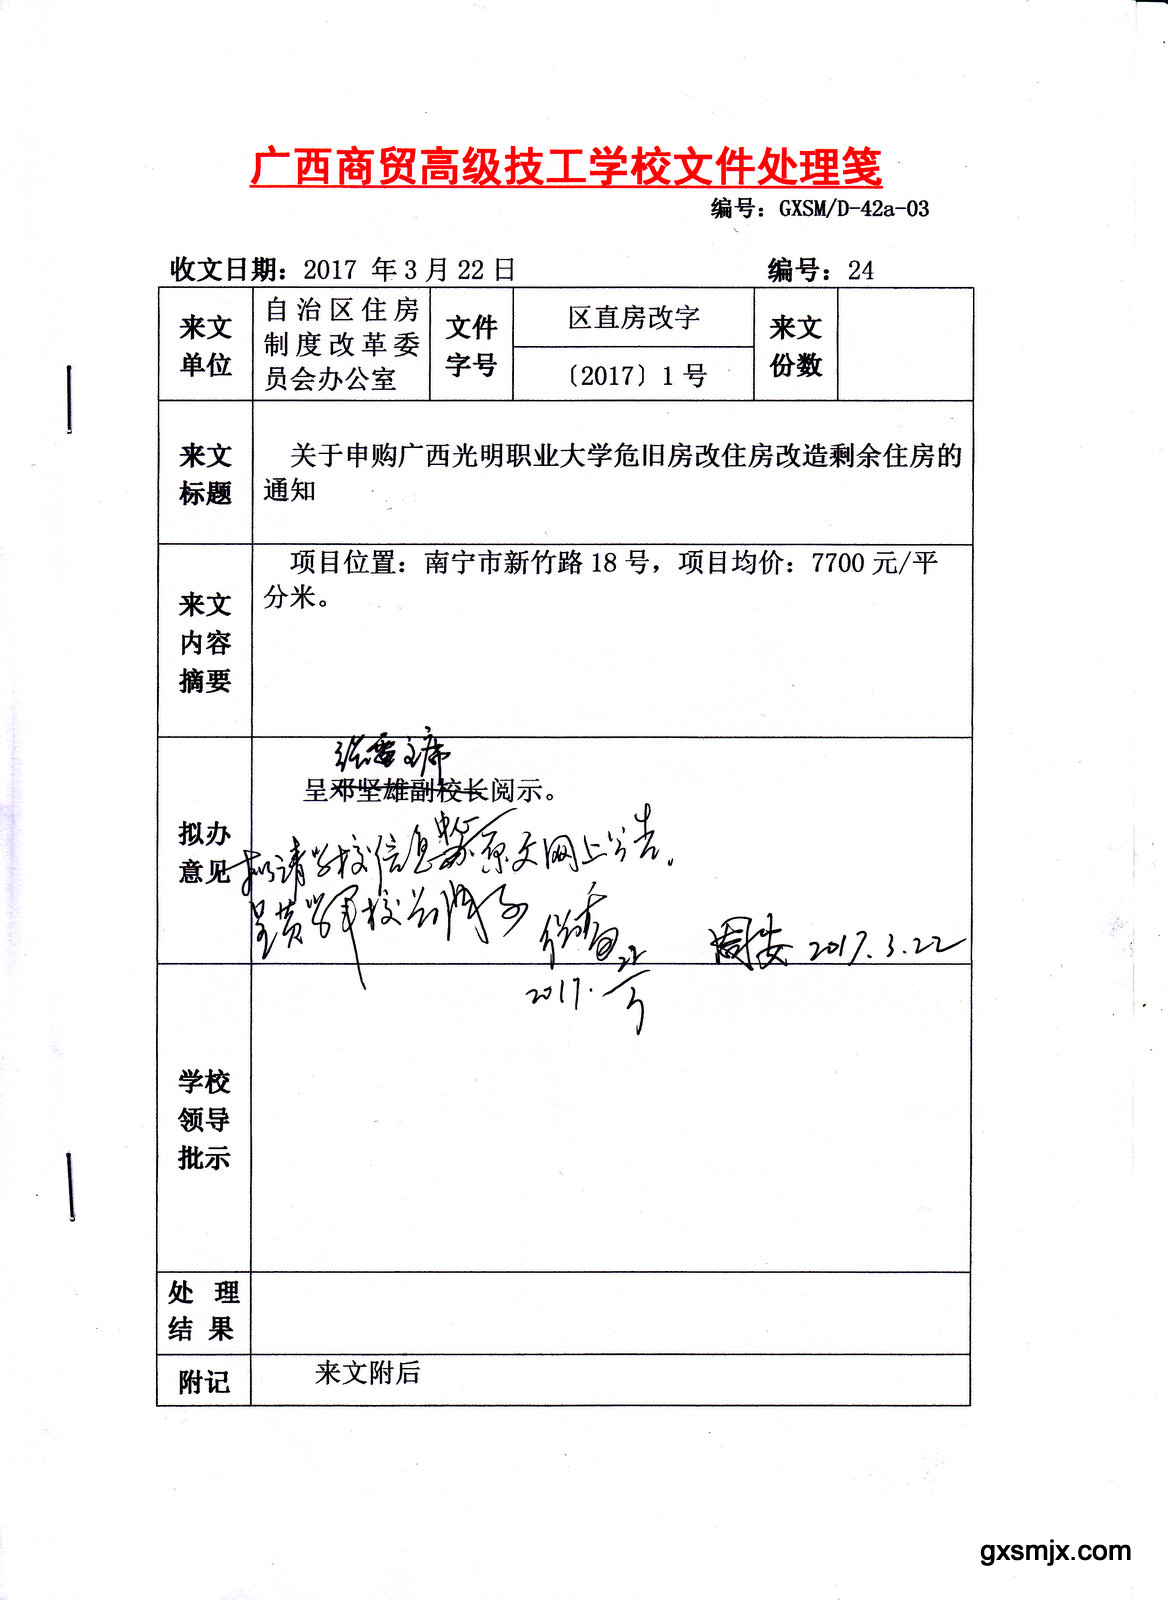 广西商贸高级技工学校文件处理笺
编号：GXSM/D-42a-03
收文日期：2017 年 3 月 22 日
编号：24
来文
单位
自治区住房
制度改革委
员会办公室
文件
字号
区直房改字
〔2017〕1 号
来文
份数
来文
标题
关于申购广西光明职业大学危旧房改住房改造剩余住房的
通知
来文
内容
摘要
项目位置：南宁市新竹路 18 号，项目均价：7700 元/平
分米。
拟办
意见
主席
呈邓坚雄副校长阅示。
拟请学校信息中心原文网上公告。
呈黄 校
周安 2017.3.22
22
2017.
3
学校
领导
批示
处 理
结 果
附记
来文附后
gxsmjx.com